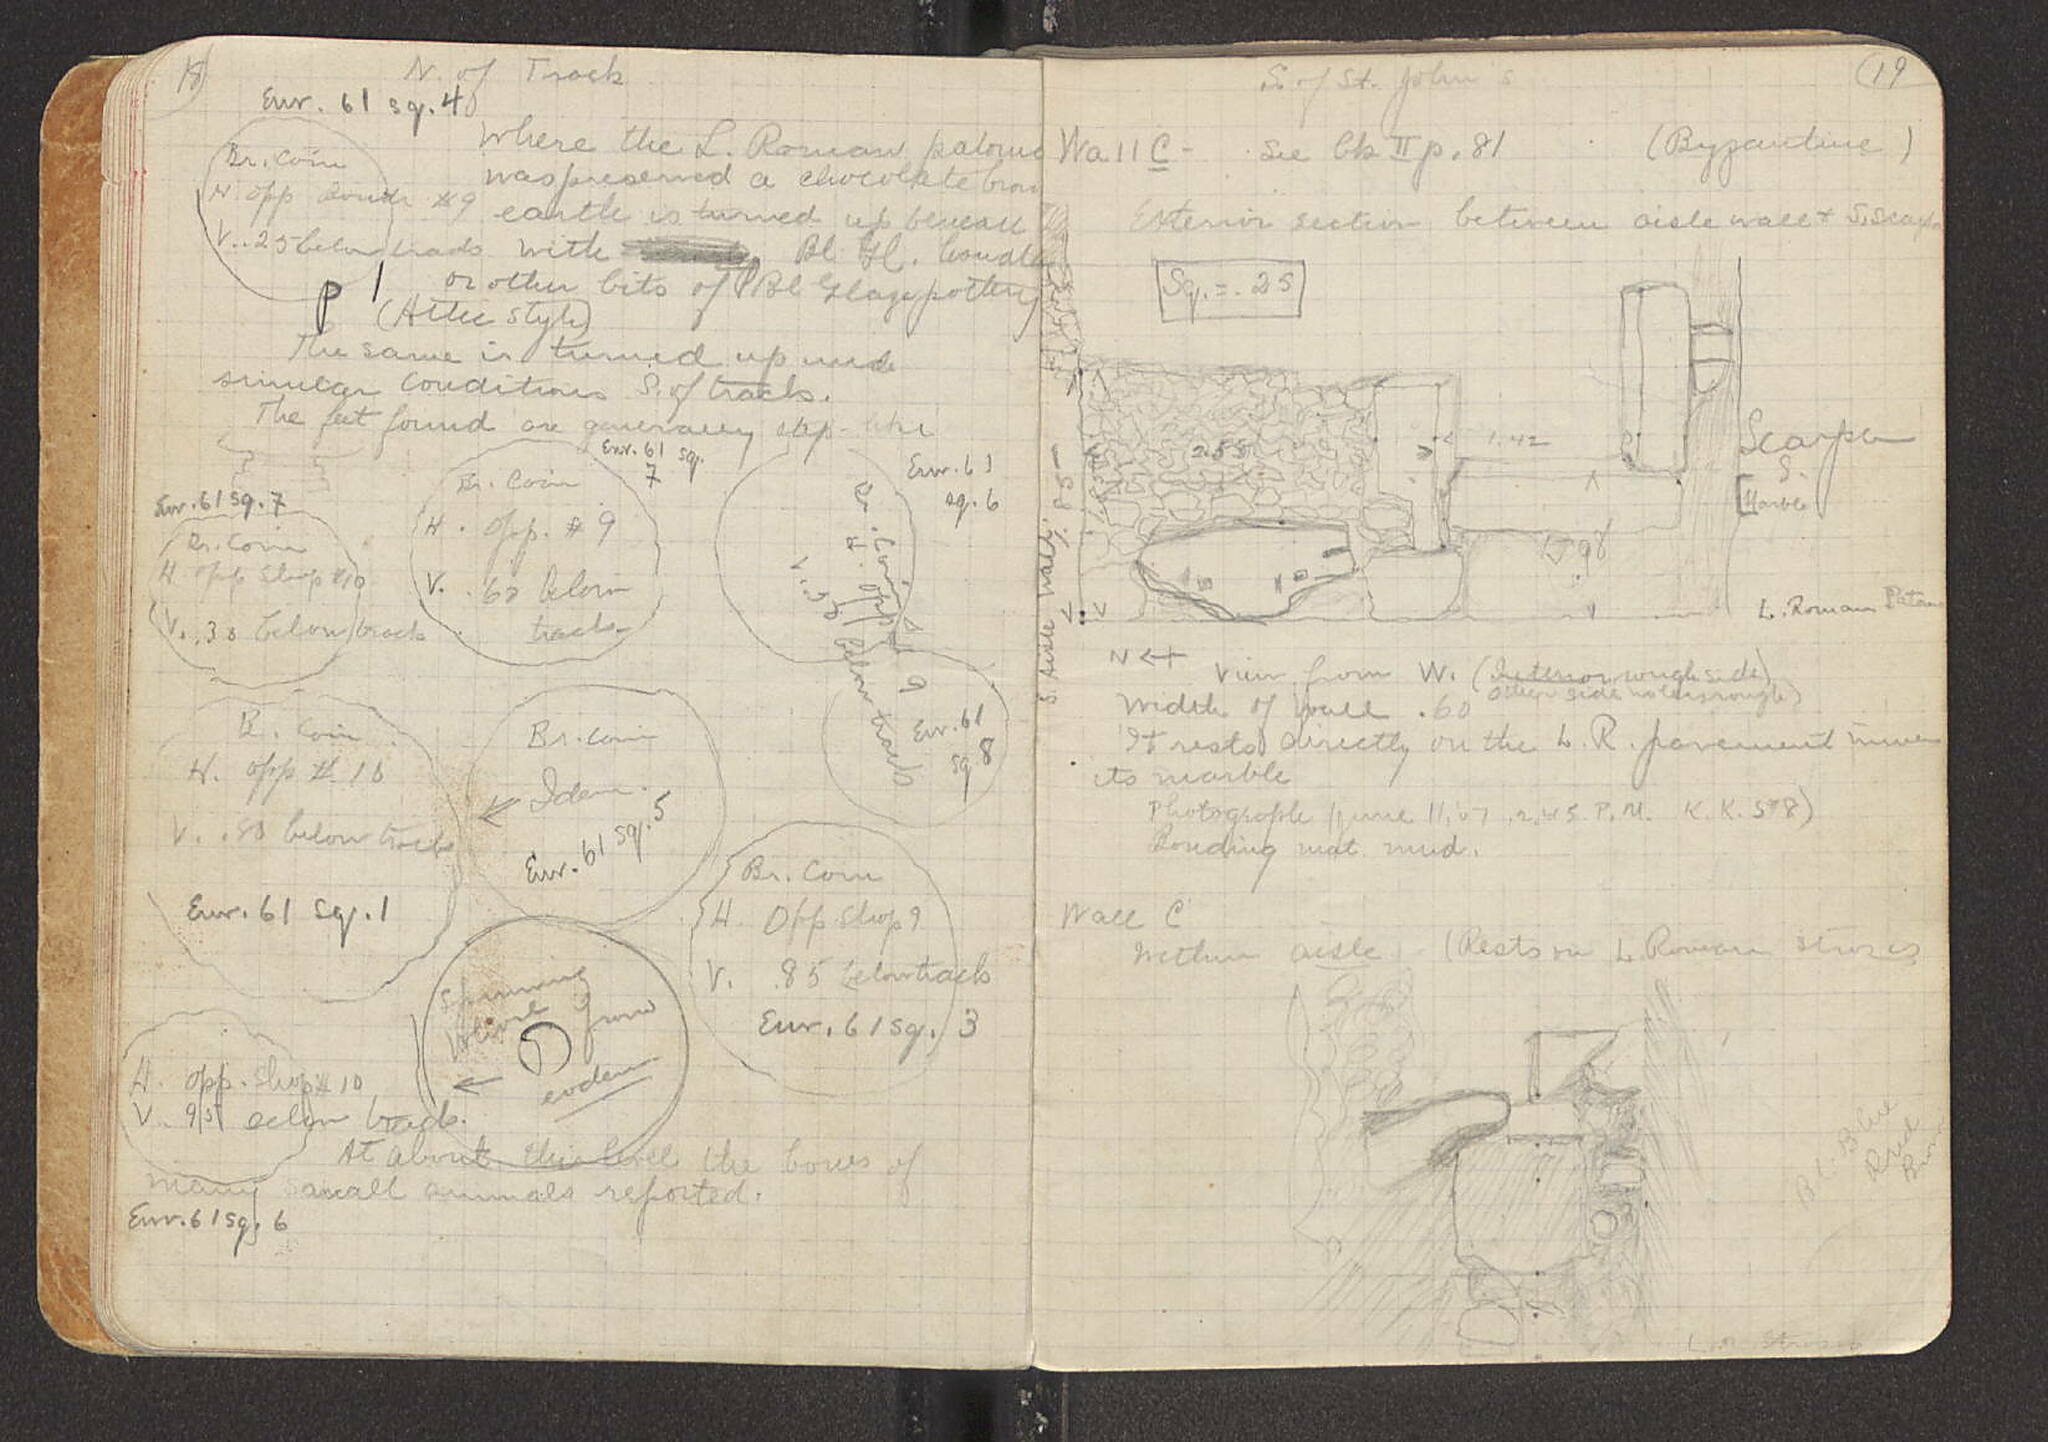 18
N. of Track
Env. 61 sq. 4
Br. Coin
H. opp #9
V. .25 below track
Where the L. Roman
was preserved a chocolate
earth is turned up
with Bl. Gl.
or other bits of Bl Glaze pottery
(Attic style)
P 1
The same is turned up
similar conditions S. of track.
The feet found are generally step-like
Env. 61 sq. 7
Br. Coin
H. opp Shop #10
V. .30 below track
Env. 61 sq.
7
Br. Coin
H. Opp. #9
V. .60 below
track
Env. 61
sq. 6
Br. Coin
H. Opp. # 9
below track
Env. 61
sq. 8
B. Coin
H. opp # 10
V. .80 below track
Env. 61 sq. 1
Br. coin
Idem.
Env. 61 sq. 5
Br. Coin
H. Opp. Shop 9
V. .85 below track
Env. 61 sq. 3
Spinning
Whorl from
eodem
H. opp. Shop # 10
V. 95 below track.
At about this level the bones of
many small animals reported.
Env. 61 sq. 6
19
S. of St. John's
Wall C - See bk II p. 81 (Byzantine)
Exterior section between aisle wall + S. Scarpa
Sq. = .25
S. Aisle Wall
1.85
2.55
1.42
.98
Scarpa
S.
Marble
L. Roman
N
View from W. (Interior rough side)
Width of Wall .60
It rests directly on the L. R. pavement minus
its marble
Photograph June 11, '07 2.45 P.M. K. K. 578)
Bonding mat. mud.
Wall C
Within aisle (Rests on L. Roman Stroses
Bl. Blue
Red
L. R. Stroses